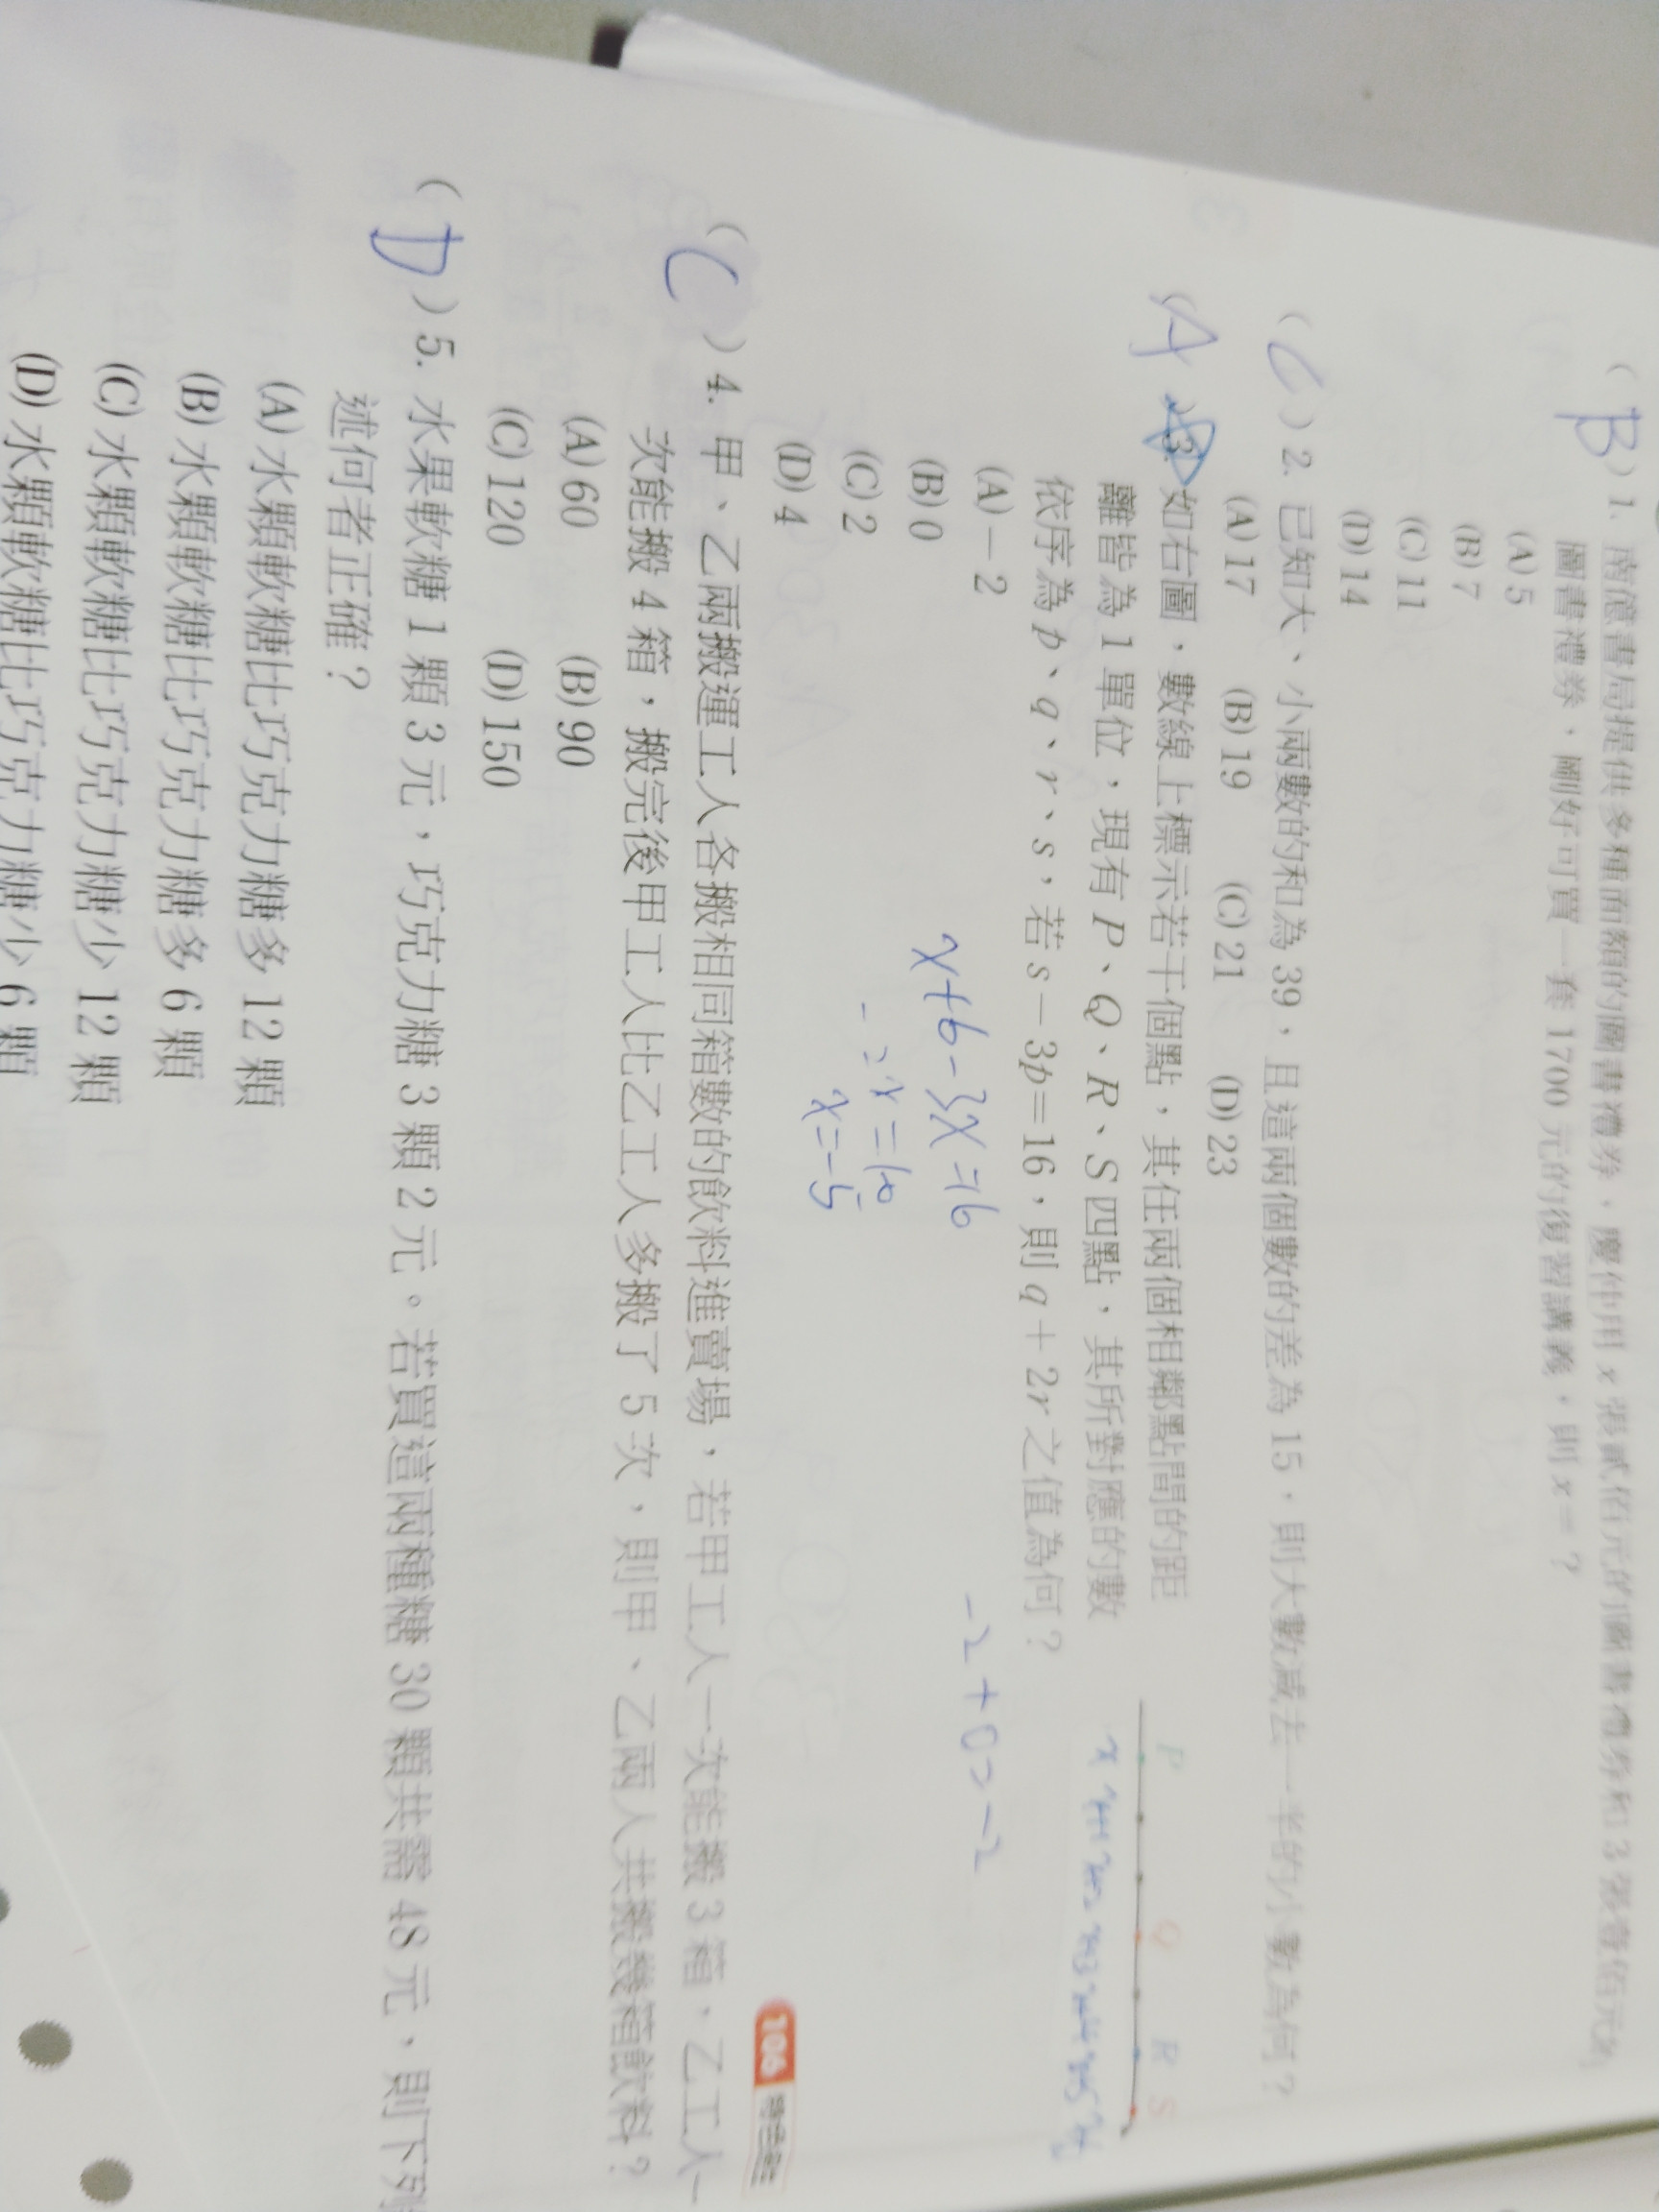 ( B ) 1. 南億書局提供多種面額的圖書禮券,慶仲用 x 張貳佰元的圖書禮券和 3 張壹佰元的
圖書禮券,剛好可買一套 1700 元的複習講義,則 x = ?
(A) 5
(B) 7
(C) 11
(D) 14
( C ) 2. 已知大、小兩數的和為 39,且這兩個數的差為 15,則大數減去一半的小數為何?
(A) 17 (B) 19 (C) 21 (D) 23
( A ) 3. 如右圖,數線上標示若干個點,其任兩個相鄰點間的距
離皆為 1 單位,現有 P、Q、R、S 四點,其所對應的數
依序為 p、q、r、s,若 s-3p=16,則 q+2r 之值為何?
P Q R S
x x+1 x+2 x+3 x+4 x+5 x+6
(A) -2
(B) 0
(C) 2
(D) 4
x+6-3x=16
x=-5
-2+0=-2
106 特色招生
( C ) 4. 甲、乙兩搬運工人各搬相同箱數的飲料進賣場,若甲工人一次能搬 3 箱,乙工人一
次能搬 4 箱,搬完後甲工人比乙工人多搬了 5 次,則甲、乙兩人共搬幾箱飲料?
(A) 60 (B) 90
(C) 120 (D) 150
( D ) 5. 水果軟糖 1 顆 3 元,巧克力糖 3 顆 2 元。若買這兩種糖 30 顆共需 48 元,則下列
述何者正確?
(A) 水顆軟糖比巧克力糖多 12 顆
(B) 水顆軟糖比巧克力糖多 6 顆
(C) 水顆軟糖比巧克力糖少 12 顆
(D) 水顆軟糖比巧克力糖少 6 顆